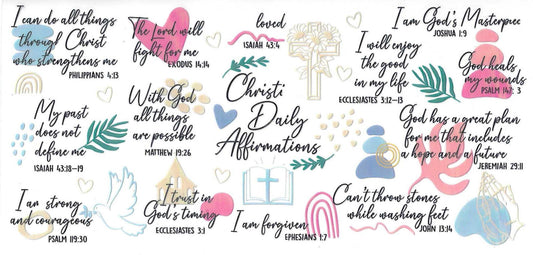 I can do all things
through Christ
who strengthens me
PHILIPPIANS 4:13
The Lord will
fight for me
EXODUS 14:14
loved
ISAIAH 43:4
I am God's Masterpiece
JOSHUA 1:9
I will enjoy
the good
in my life
ECCLESIASTES 3:12-13
God heals
my wounds
PSALM 147: 3
My past
does not
define me
ISAIAH 43:18-19
With God
all things
are possible
MATTHEW 19:26
Christi
Daily
Affirmations
God has a great plan
for me that includes
a hope and a future
JEREMIAH 29:11
I am strong
and courageous
PSALM 119:30
I trust in
God's timing
ECCLESIASTES 3:1
I am forgiven
EPHESIANS 1:7
Can't throw stones
while washing feet
JOHN 13:14